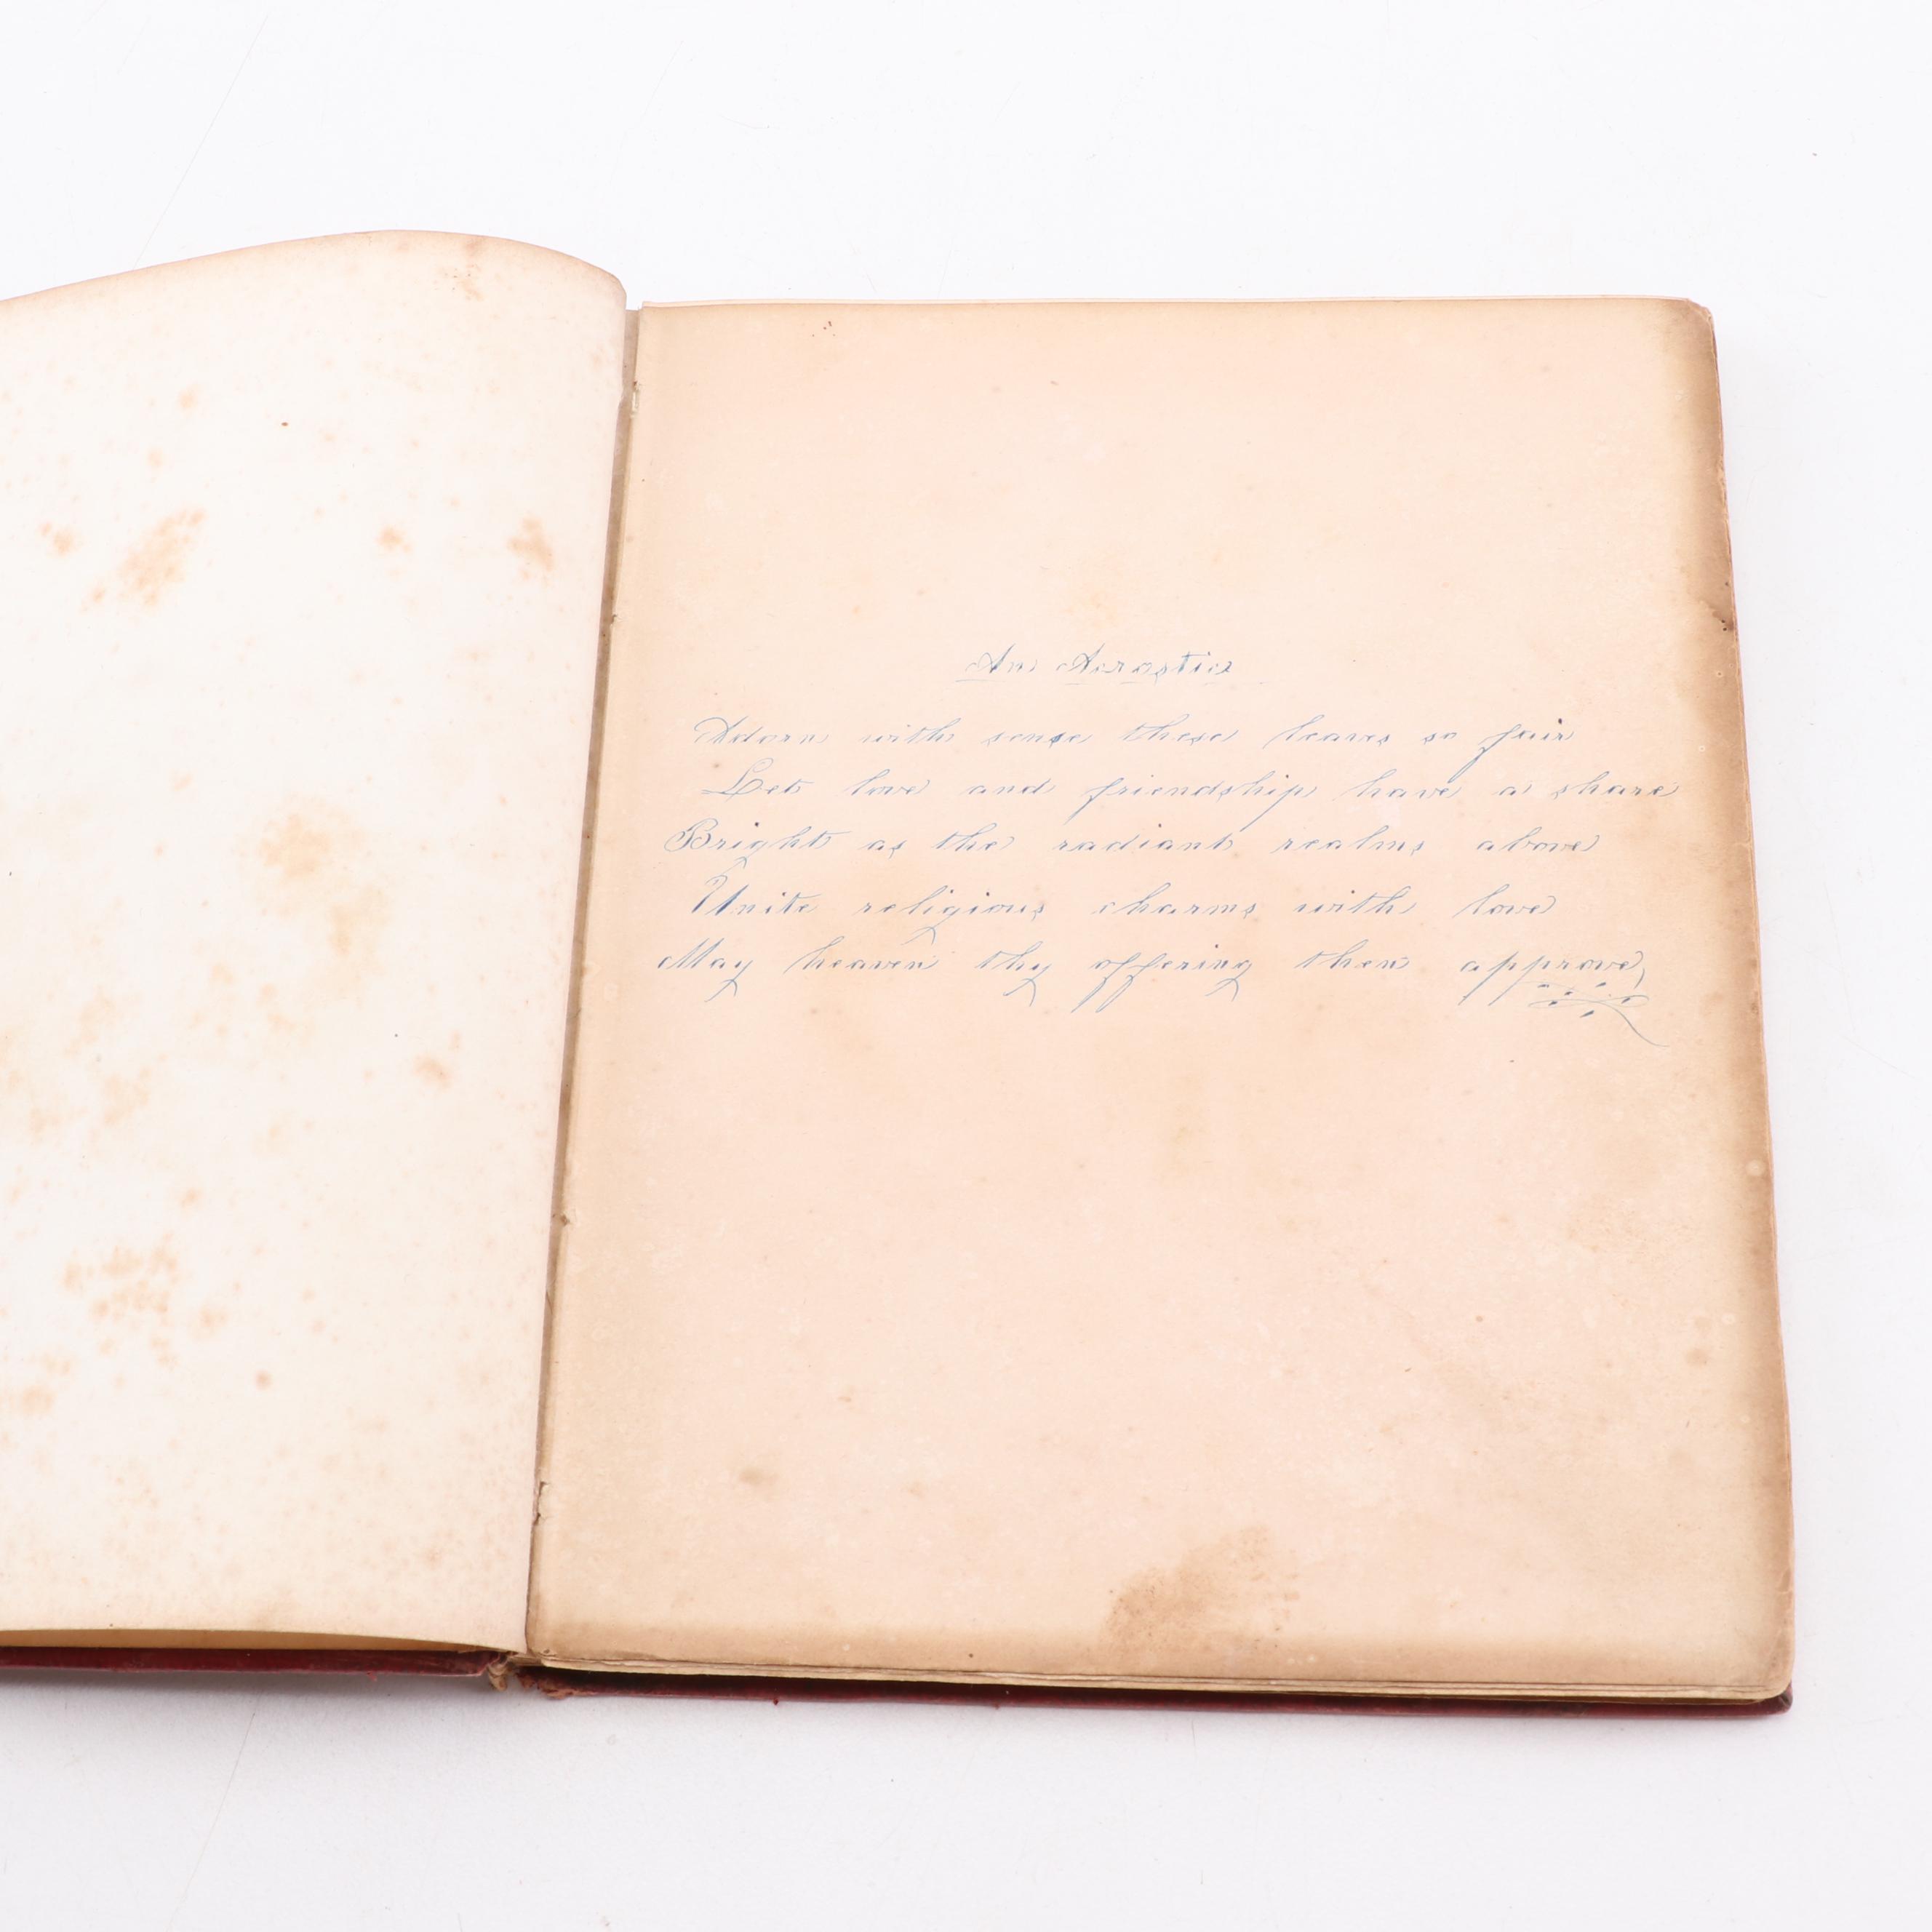 An Acrostic
Adorn with sense these leaves so fair
Let love and friendship have a share
Bright as the radiant realms above
Unite religious charms with love
May heaven thy offering then approve,